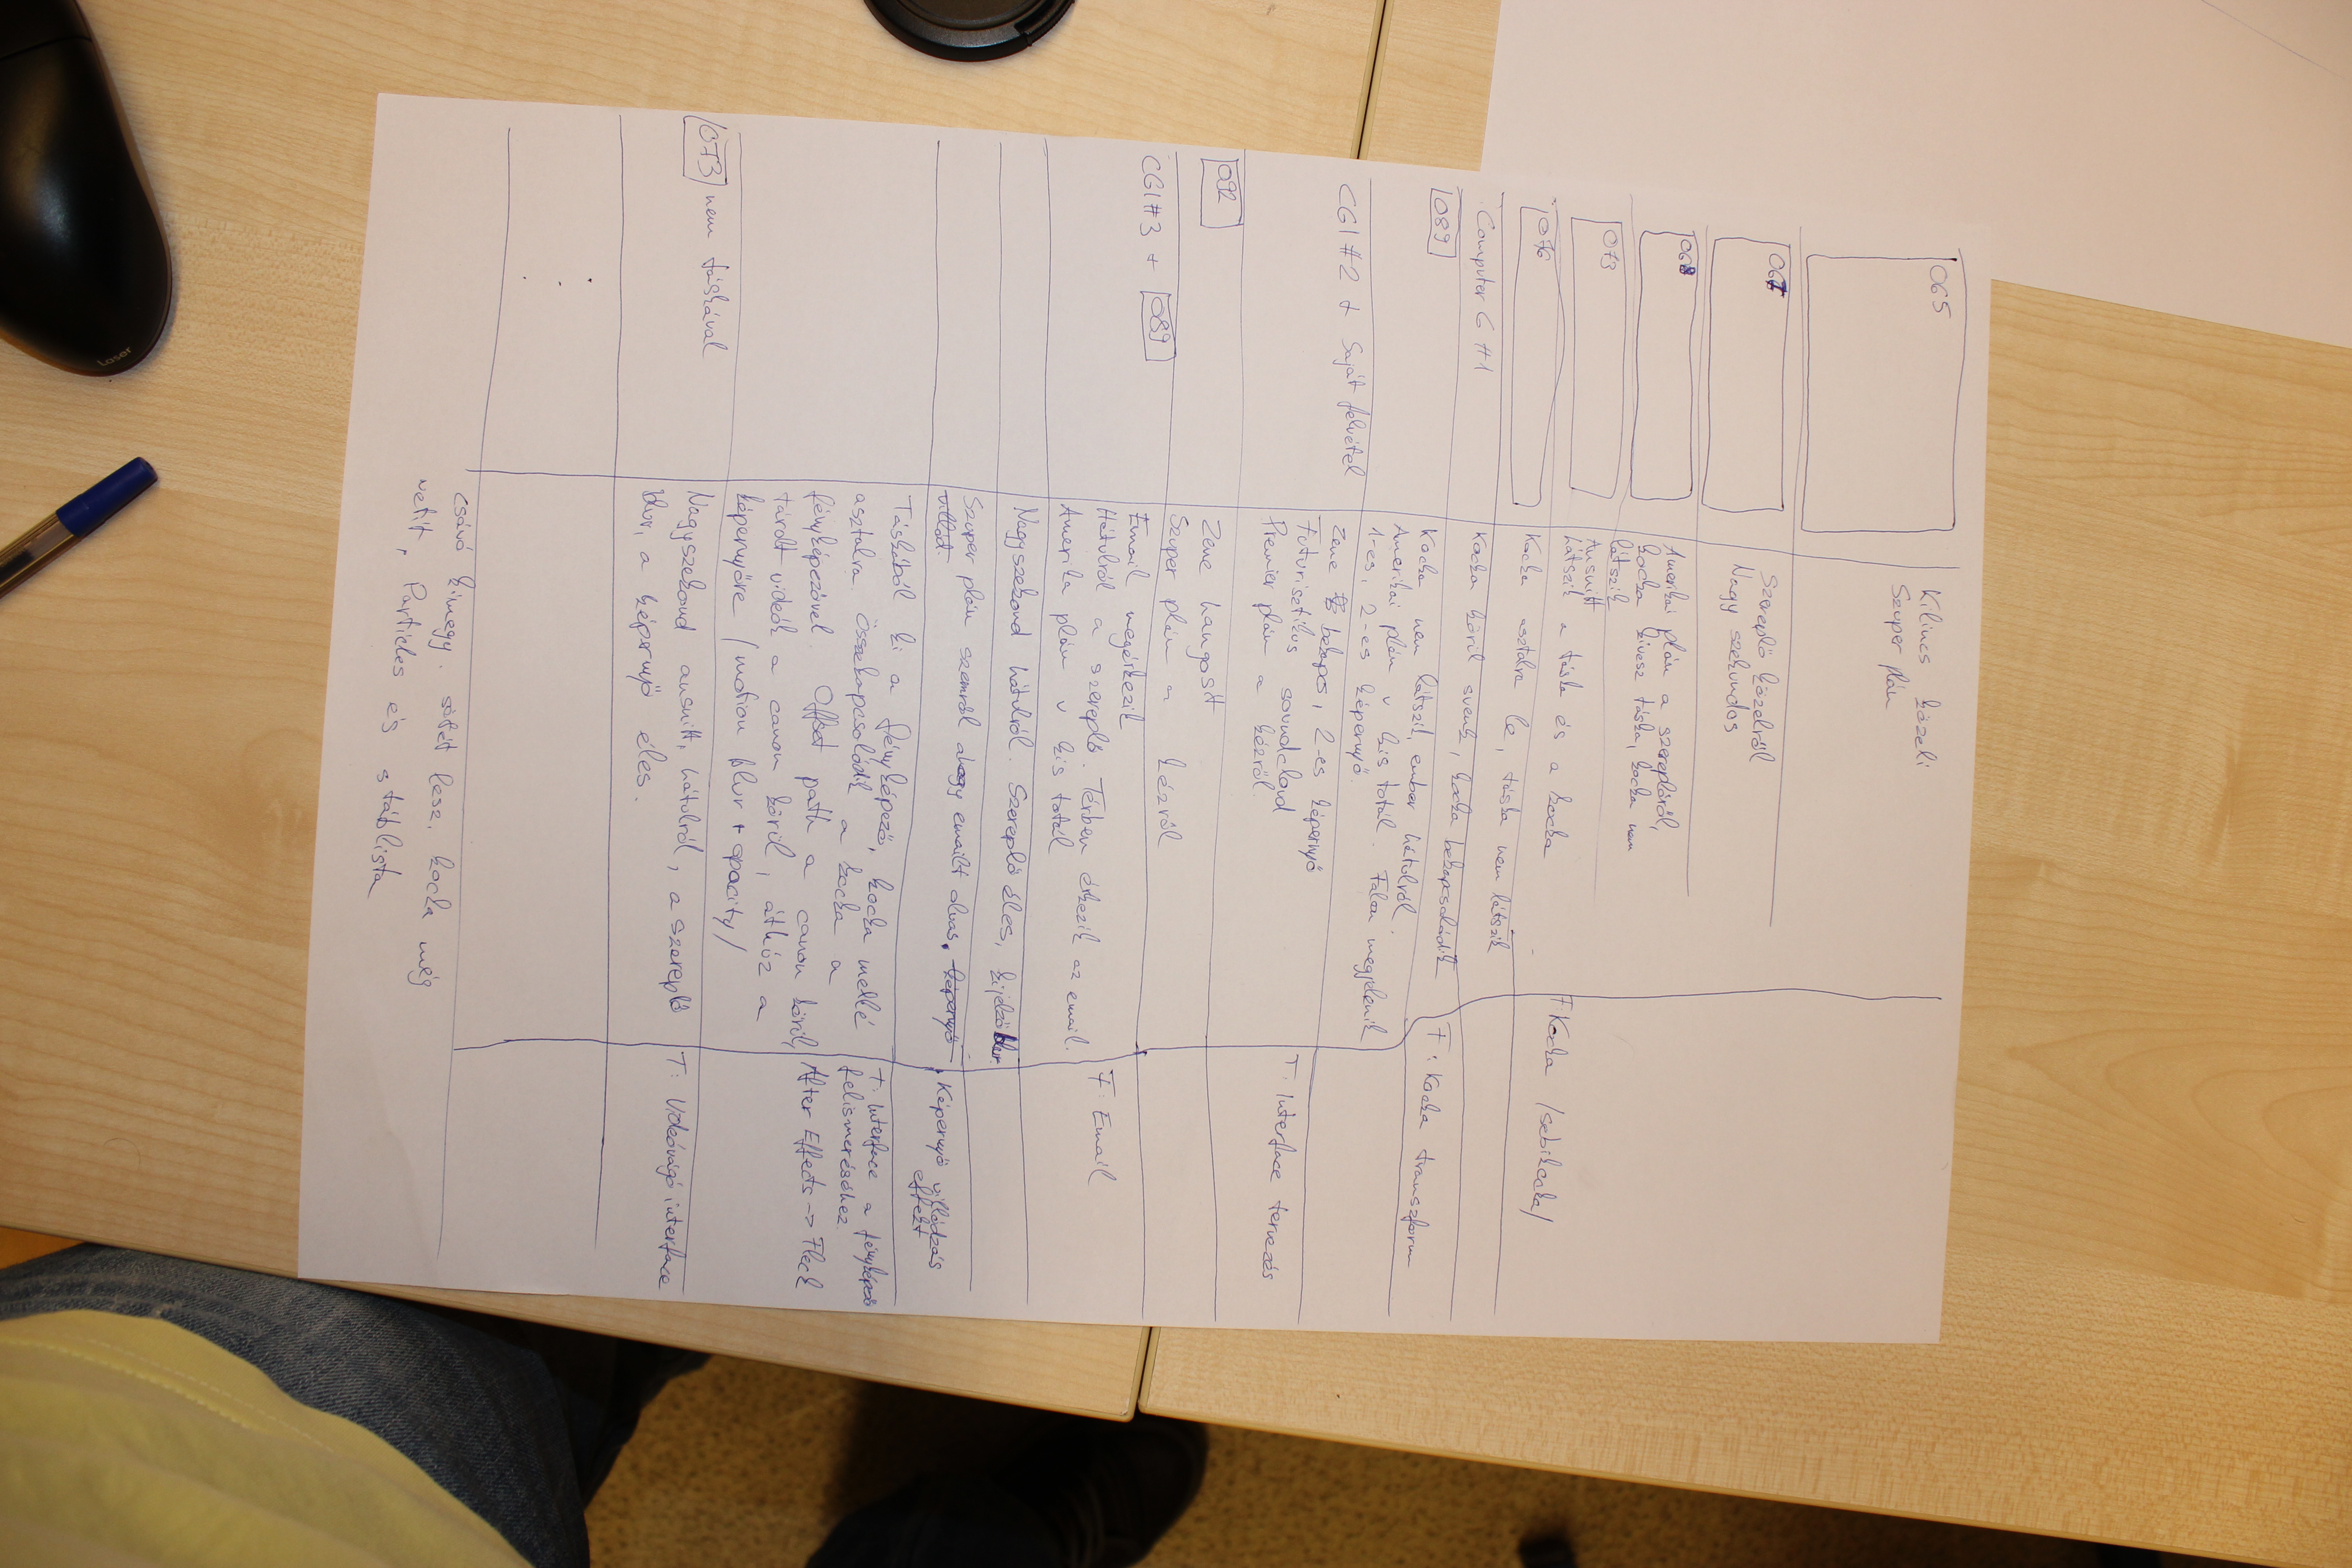 065
Kilincs közeli
Szuper plán
067
Szereplő közelről
Nagy szekundos
068
Amerikai plán a szereplőről,
kocka kivesz táska, kocka nem
látszik
073
Ansnitt
látszik a táska és a kocka
076
Kocka asztalra le, táska nem látszik
F Kocka /sebikocka/
Computer G #1
Kocka körül svenk, kocka bekapcsolódik
089
Kocka nem látszik, ember hátulról
Amerikai plán v kis totál. Falon megjelenik
1-es, 2-es képernyő.
F: Kocka transzform
CGI #2 + Saját felvétel
Zene bekapcs, 2-es képernyő
Futurisztikus soundcloud
Premier plán a kézről
T: Interface tervezés
092
Zene hangosít
Szuper plán a kézről
CGI #3 + 089
Email megérkezik
Hátulról a szereplő. Térben érkezik az email.
Amerika plán v kis totál
F: Email
Nagyszekond hátulról. Szereplő éles, kijelző blur.
Szuper plán szemről ahogy emailt olvas. képernyő
villódt.
Képernyő villódzás
effekt
Táskából ki a fényképező, kocka mellé
asztalra. Összekapcsolódik a kocka a
fényképezővel. Offset path a canon körül,
tárolt videók a canon körül, áthúz a
képernyőre /motion blur + opacity/
T: Interface a fényképező
felismeréséhez.
After Effects -> Fleck
073 nem táskával
Nagyszekond ansnitt, hátulról, a szereplő
blur, a képernyő éles.
T: Videóvágó interface
csávó kimegy. sötét lesz, kocka még
vetít, Particles és stáblista